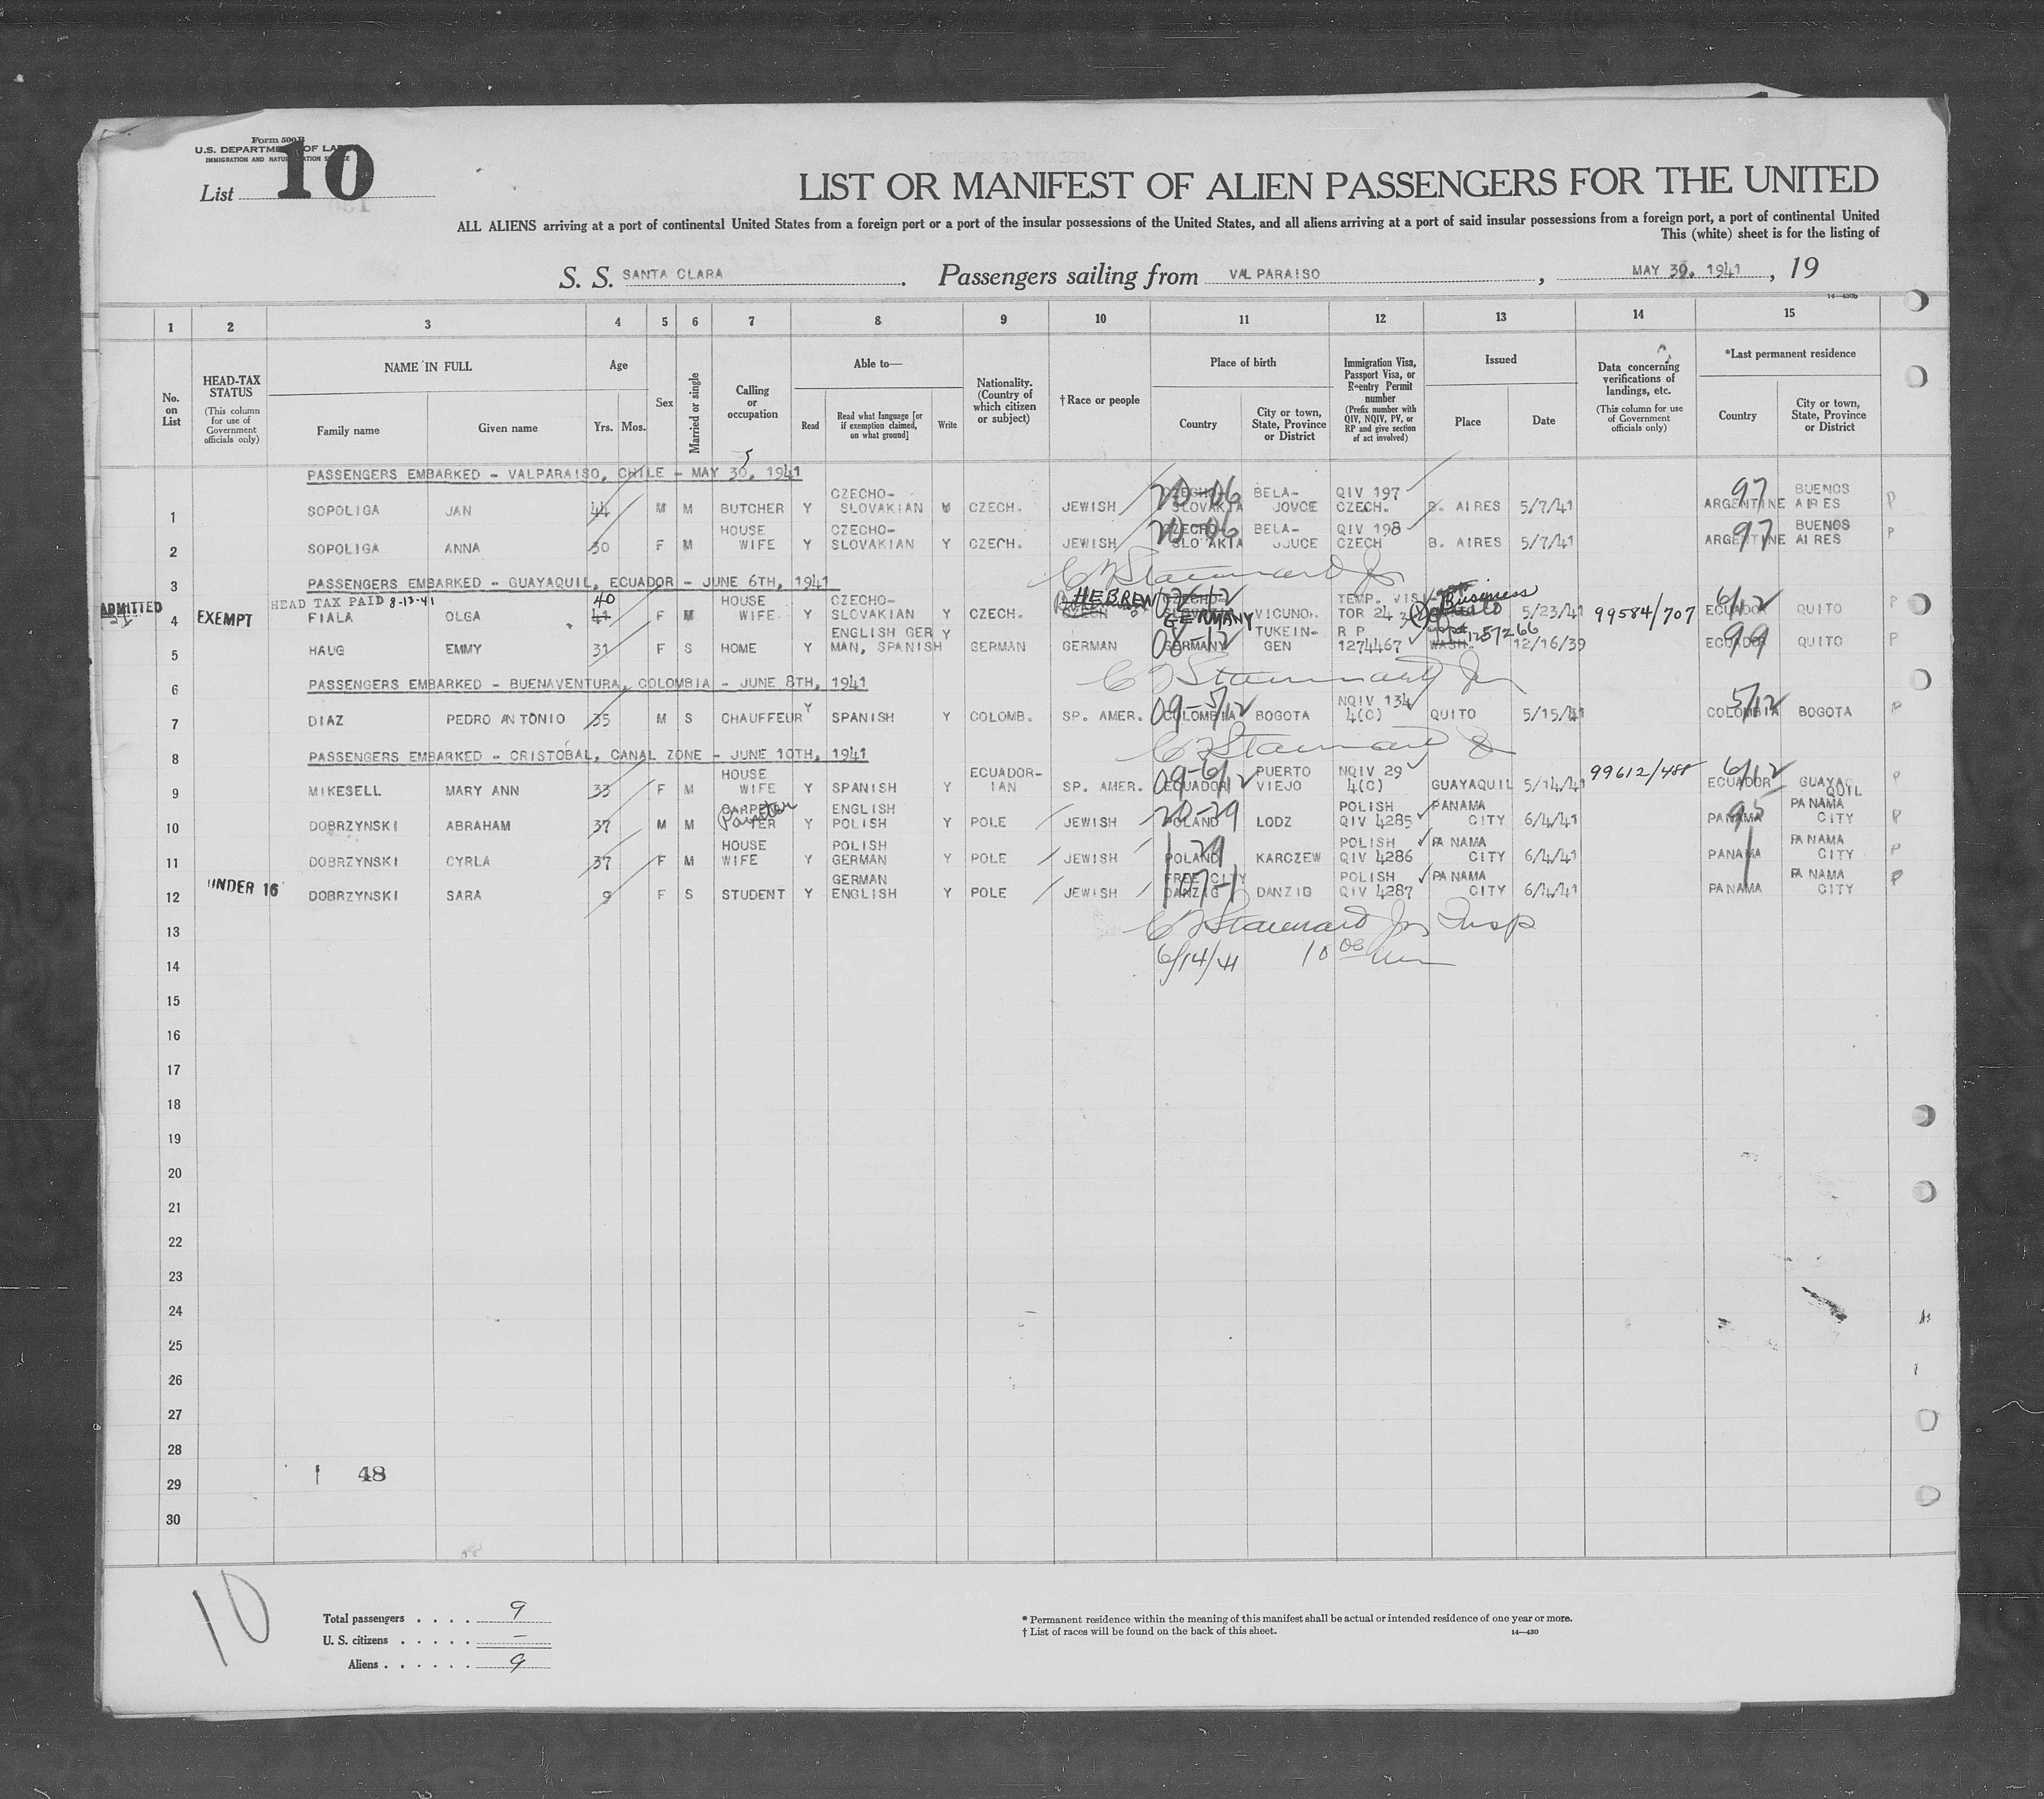 Form 500B
U.S. DEPARTMENT OF LABOR
IMMIGRATION AND NATURALIZATION SERVICE
List 10
LIST OR MANIFEST OF ALIEN PASSENGERS FOR THE UNITED
ALL ALIENS arriving at a port of continental United States from a foreign port or a port of the insular possessions of the United States, and all aliens arriving at a port of said insular possessions from a foreign port, a port of continental United
This (white) sheet is for the listing of
S. S. SANTA CLARA. Passengers sailing from VALPARAISO, MAY 30, 1941, 19
14—430b
1 2 3 4 5 6 7 8 9 10 11 12 13 14 15
No. on List
HEAD-TAX STATUS (This column for use of Government officials only)
NAME IN FULL Family name Given name
Age Yrs. Mos.
Sex
Married or single
Calling or occupation
Able to— Read Read what language [or if exemption claimed, on what ground] Write
Nationality. (Country of which citizen or subject)
†Race or people
Place of birth Country City or town, State, Province or District
Immigration Visa, Passport Visa, or Reentry Permit number (Prefix number with QIV, NQIV, PV, or RP and give section of act involved)
Issued Place Date
Data concerning verifications of landings, etc. (This column for use of Government officials only)
*Last permanent residence Country City or town, State, Province or District
PASSENGERS EMBARKED - VALPARAISO, CHILE - MAY 30, 1941
1 SOPOLIGA JAN 44 M M BUTCHER Y CZECHO-SLOVAKIAN W CZECH. JEWISH CZECHO-SLOVAKIA 20-06 BELA-JOVCE QIV 197 CZECH. B. AIRES 5/7/41 ARGENTINE 97 BUENOS AIRES P
2 SOPOLIGA ANNA 30 F M HOUSE WIFE Y CZECHO-SLOVAKIAN Y CZECH. JEWISH CZECHO-SLO AKIA 20-06 BELA-JOUCE QIV 198 CZECH B. AIRES 5/7/41 ARGENTINE 97 BUENOS AIRES P
3 PASSENGERS EMBARKED - GUAYAQUIL, ECUADOR - JUNE 6TH, 1941
C F Stannard Jr
ADMITTED
HEAD TAX PAID 8-13-41
4 EXEMPT FIALA OLGA 41 40 F M HOUSE WIFE Y CZECHO-SLOVAKIAN Y CZECH. HEBREW GERMANY VICUNO. TEMP. VISI-TOR 24 Business 5/23/41 99584/707 ECUADOR 6/12 QUITO P
5 HAUG EMMY 31 F S HOME Y ENGLISH GERMAN, SPANISH Y GERMAN GERMAN GERMANY 08-12 TUKEIN-GEN R P 1274467 WASH. 1257266 12/16/39 ECUADOR 99 QUITO P
6 PASSENGERS EMBARKED - BUENAVENTURA, COLOMBIA - JUNE 8TH, 1941
C F Stannard Jr
7 DIAZ PEDRO ANTONIO 35 M S CHAUFFEUR Y SPANISH Y COLOMB. SP. AMER. COLOMBIA 09-5/12 BOGOTA NQIV 134 4(C) QUITO 5/15/41 COLOMBIA 5/12 BOGOTA P
8 PASSENGERS EMBARKED - CRISTOBAL, CANAL ZONE - JUNE 10TH, 1941
C F Stannard Jr
9 MIKESELL MARY ANN 33 F M HOUSE WIFE Y SPANISH Y ECUADOR-IAN SP. AMER. ECUADOR 09-6/12 PUERTO VIEJO NQIV 29 4(C) GUAYAQUIL 5/14/41 99612/488 ECUADOR 6/12 GUAYAQUIL P
10 DOBRZYNSKI ABRAHAM 37 M M CARPENTER Painter Y ENGLISH POLISH Y POLE JEWISH POLAND 20-29 LODZ POLISH QIV 4285 PANAMA CITY 6/4/41 PANAMA 95 PANAMA CITY P
11 DOBRZYNSKI CYRLA 37 F M HOUSE WIFE Y POLISH GERMAN Y POLE JEWISH POLAND 29 KARCZEW POLISH QIV 4286 PANAMA CITY 6/4/41 PANAMA PANAMA CITY P
12 UNDER 16 DOBRZYNSKI SARA 9 F S STUDENT Y GERMAN ENGLISH Y POLE JEWISH FREE CITY DANZIG 17-1 DANZIG POLISH QIV 4287 PANAMA CITY 6/4/41 PANAMA PANAMA CITY P
13 C F Stannard Jr Insp
14 6/14/41 10 00
15
16
17
18
19
20
21
22
23
24
25
26
27
28
48
29
30
10
Total passengers . . . . 9
U. S. citizens . . . . . –
Aliens . . . . . . 9
* Permanent residence within the meaning of this manifest shall be actual or intended residence of one year or more.
† List of races will be found on the back of this sheet.
14—430